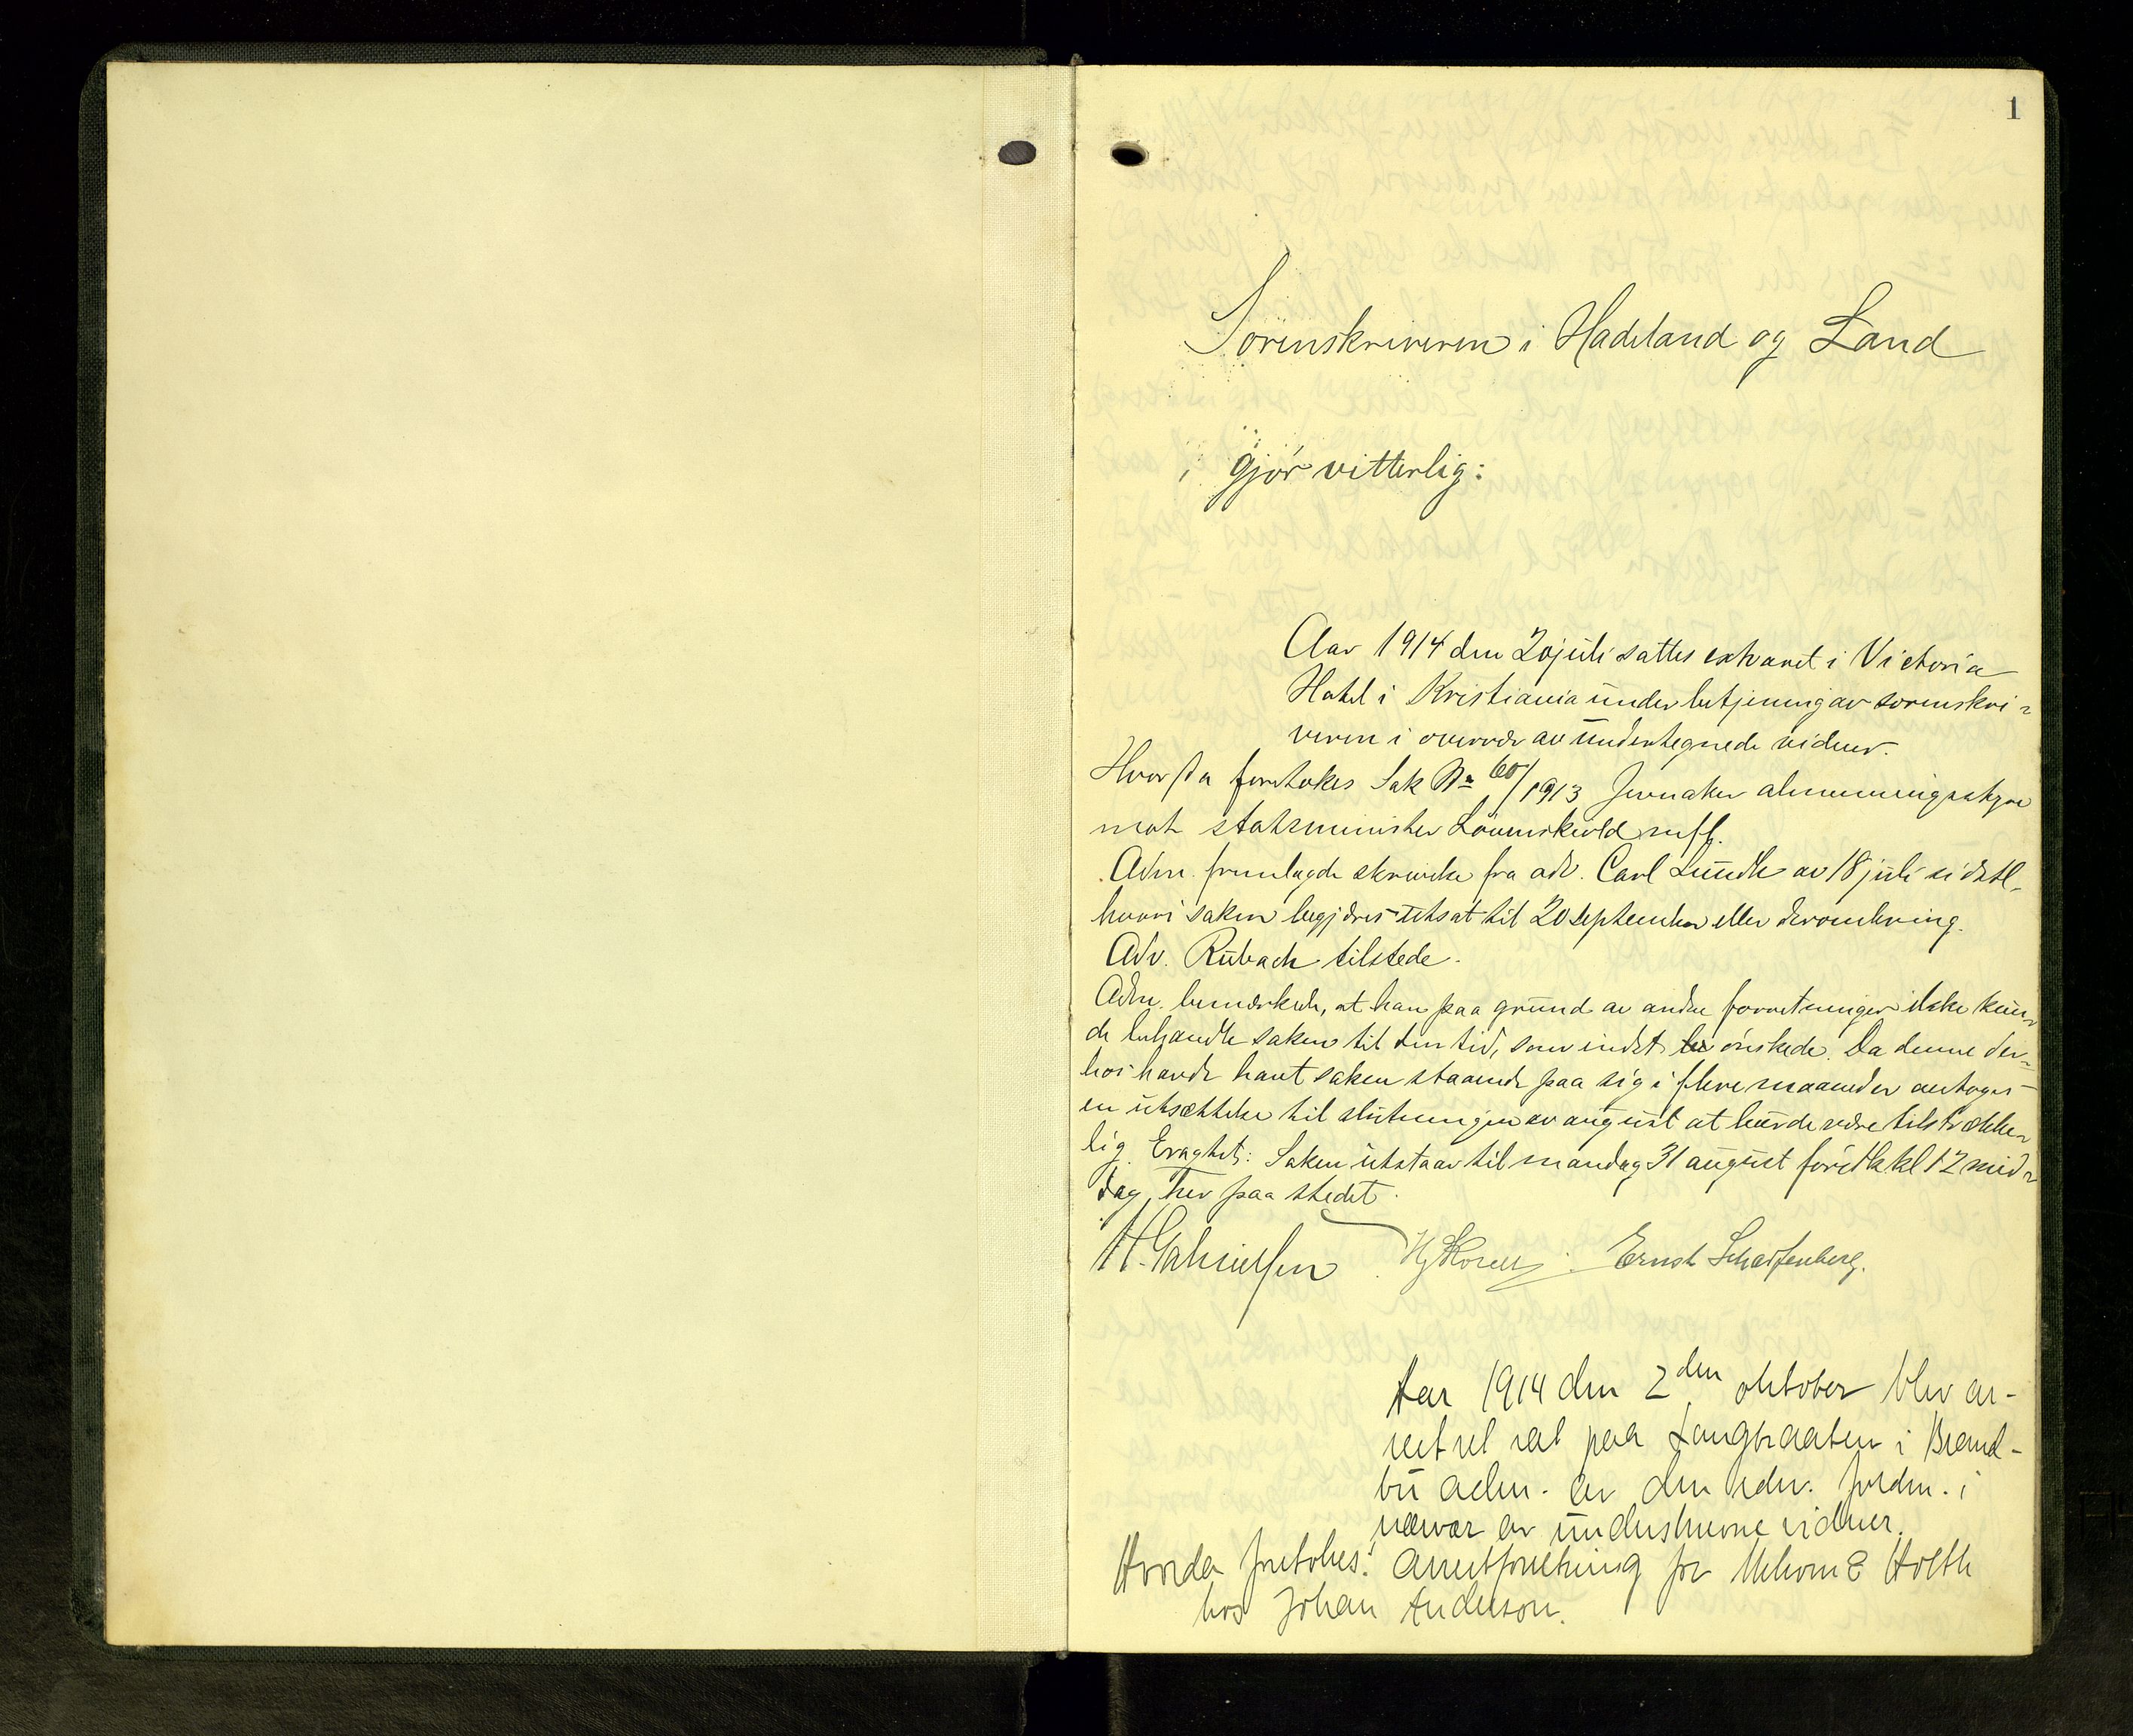 1
Sorenskriveren i Hadeland og Land
gjør vitterlig:
Aar 1914 den 20 juli sattes extraret i Victoria
Hotel i Kristiania under betjening av sorenskri-
veren i overvær av undertegnede vidner.
Hvorda foretokes Sak No 60/1913 Jevnaker almenningsstyre
mot statsminister Løvenskiold m fl.
Adm. fremlagde skrivelse fra adv. Carl Lundh av 18 juli sidstl.
hvori saken begjæres utsat til 20 september eller deromkring.
Adv. Rubach tilstede.
Adm. bemærkede, at han paa grund av andre forretninger ikke kun-
de behandle saken til den tid, som ønskede. Da denne der-
hos havde havt saken staaende paa sig i flere maaneder antoges
en utsættelse til slutningen av august at burde være tilstrække-
lig. Eragtet: Saken utstaar til mandag 31 august førstk. kl 12 mid-
dag, her paa stedet.
H. Gabrielsen Ernst Scharfenberg.
Aar 1914 den 2den oktober blev ar-
restret sat paa Langbraaten i Brand-
bu adm. av den edsv. fuldm. i
nærvær av underskrevne vidner.
Hvorda foretokes: Arrestforretning for Mehom & Holth
hos Johan Anderson.